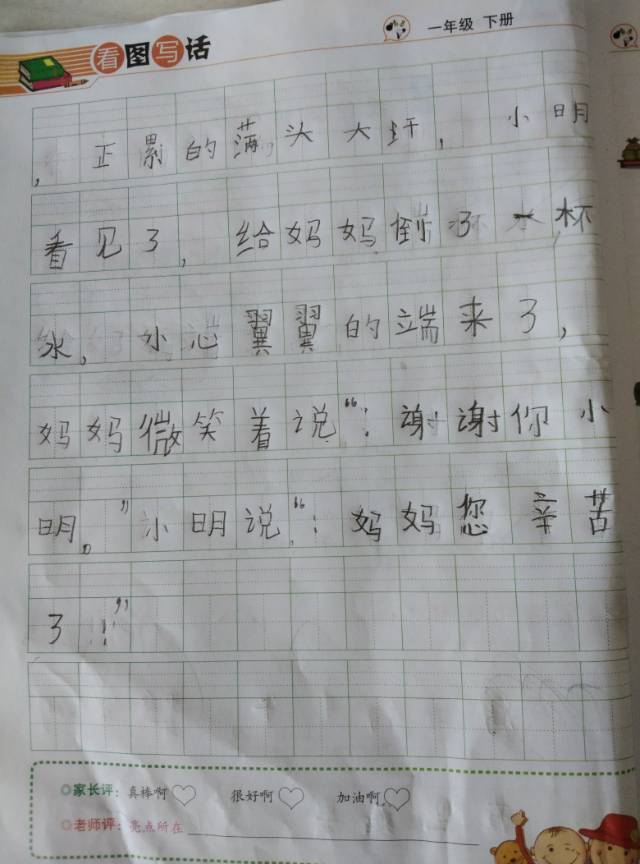 看图写话
一年级 下册
，正累的满头大汗，小明
看见了，给妈妈倒了一杯
水，小心翼翼的端来了，
妈妈微笑着说“：谢谢你小
明。”小明说“：妈妈您辛苦
了！”
家长评：真棒啊 很好啊 加油啊
老师评：亮点所在